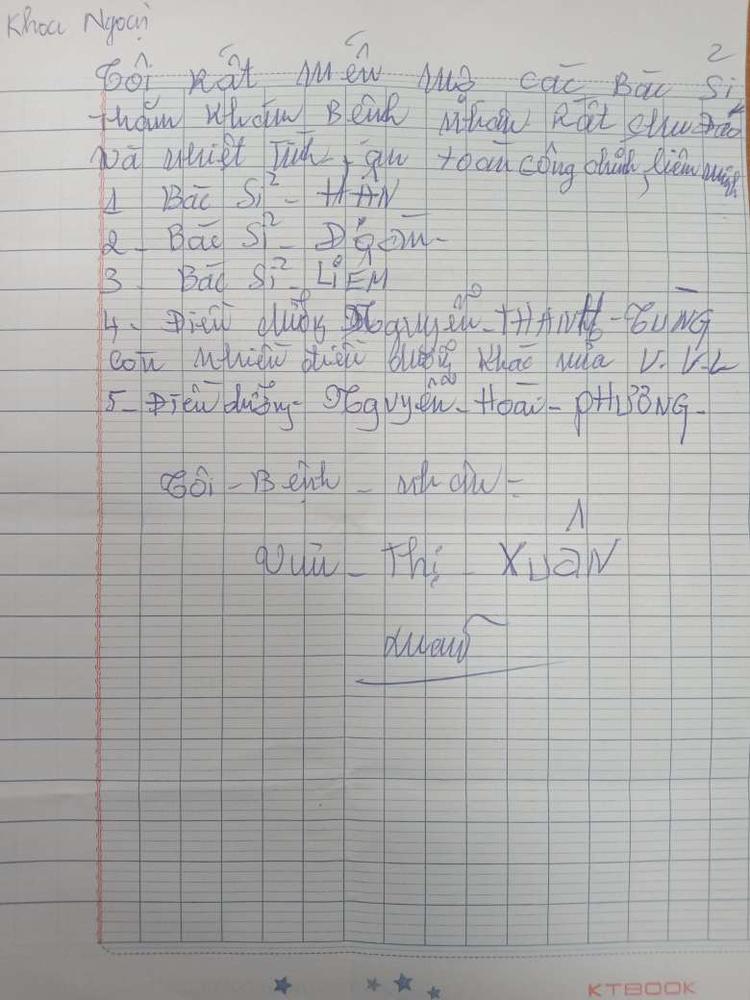 Khoa Ngoại
Tôi Rất mến mộ các Bác Sỉ
thăm khám Bệnh nhân Rất chu Đáo
và nhiệt Tình, ân toàn công chính, liêm minh
1 Bác Sỉ - HÂN
2 - Bác Sỉ -
3 - Bác Sỉ - LIÊM
4 - Điều dưỡng Nguyễn - THANH - TÙNG
còn nhiều điều dưỡng khác nữa V.V.L
5 - Điều dưỡng - Nguyễn - Hoài - PHƯƠNG -
Tôi - Bệnh - nhân -
Vũ - Thị - XUÂN
Xuân
KTBOOK